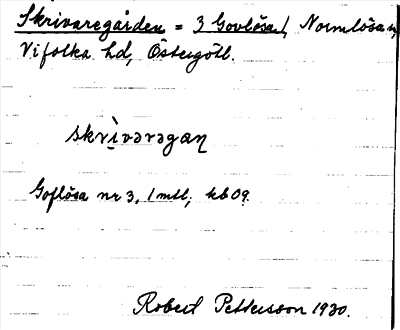 Skrivaregården = 3 Govlösa, Normlösa sn,
Vifolka hd, Östergötl.
skrìvərəgaɳ
Goflösa nr 3, 1 mtl, kb 09.
Robert Pettersson 1930.